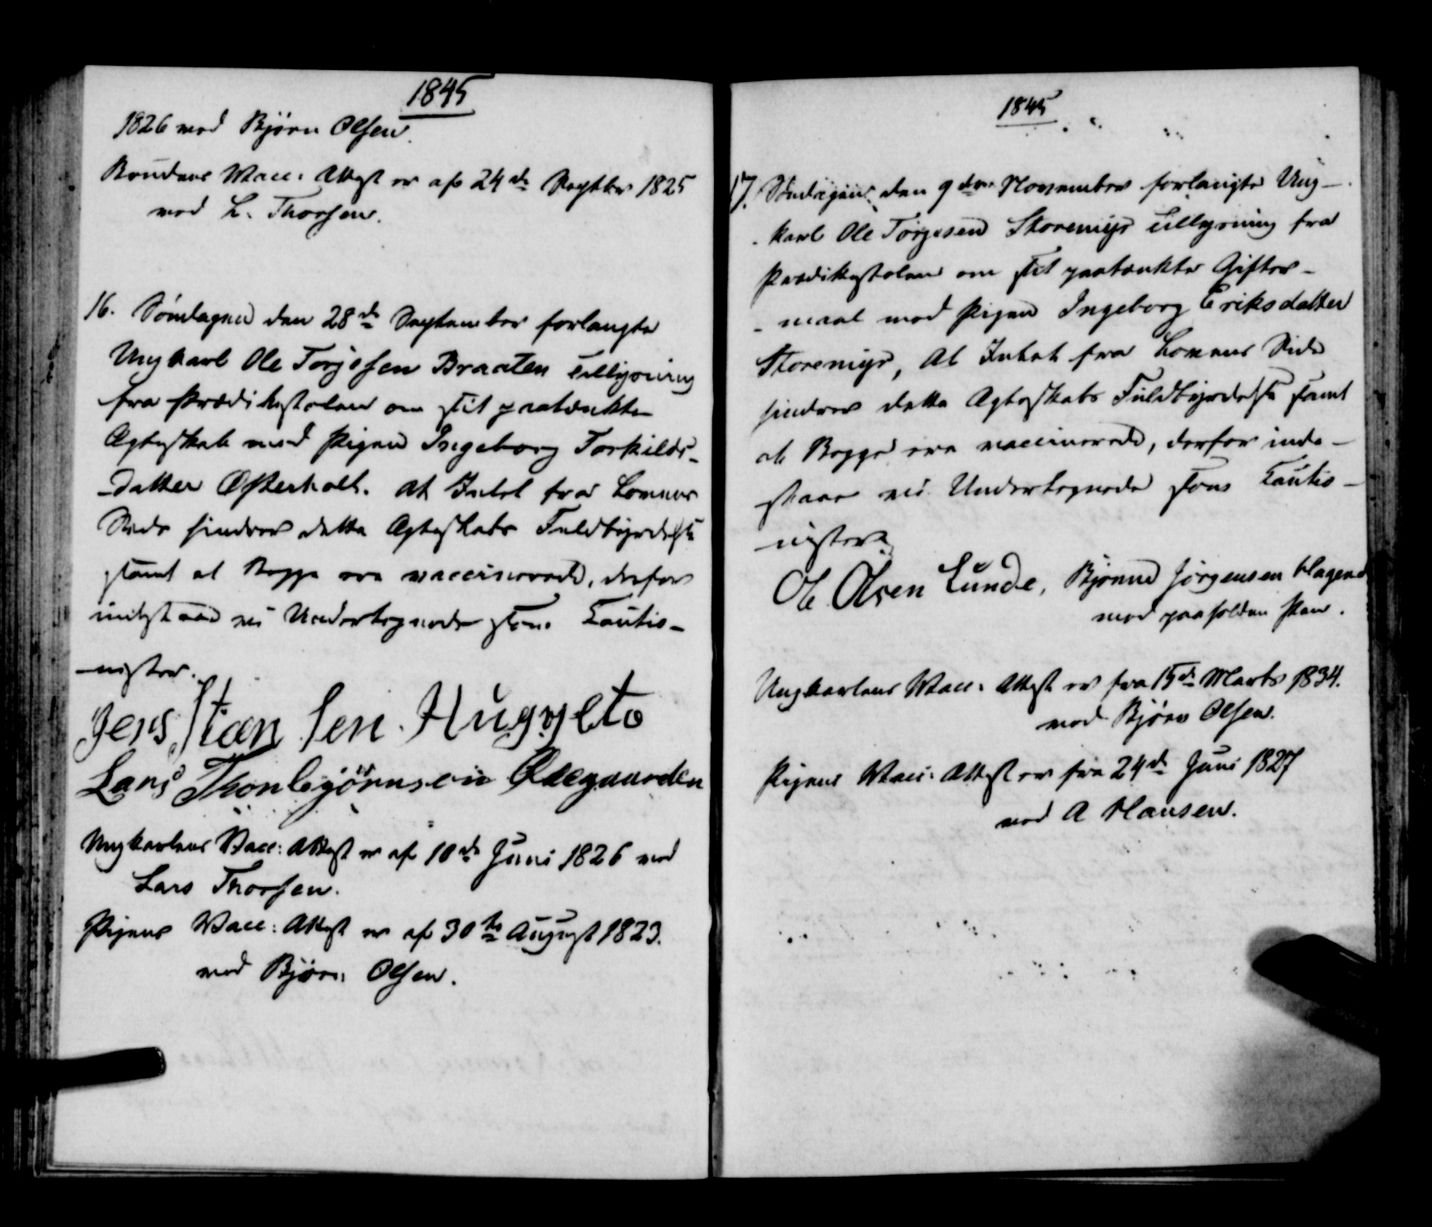 1845
1826 ved Bjørn Olsen.
Brudens Vacc: Attest er af 24de Septbr 1825
ved L. Thorsen.
16. Søndagen den 28de September forlangte
Ungkarl Ole Torjesen Braaten Tillysning
fra Prædikestolen om sit paatænkte
Ægteskab med Pigen Ingeborg Torkilds-
-datter Østerholt. At Intet fra Lovens
Side hindrer dette Ægteskabs Fuldbyrdelse
samt at Begge ere vaccinerede, derfor
indestaae vi Undertegnede som Cautio-
-nister.
Jens Stian sen. Huggeto
Lars Thorbjørnsen Ødegaarden
Ungkarlens Vacc: Attest er af 10de Juni 1826 ved
Lars Thorsen.
Pigens Vacc: Attest er af 30te August 1823.
ved Bjørn Olsen.
1845
17. Søndagen den 9de November forlangte Ung-
karl Ole Torjesen Storemyr Tillysning fra
Prædikestolen om sit paatænkte Gifter-
-maal med Pigen Ingeborg Eriksdatter
Storemyr, At Intet fra Lovens Side
hindrer dette Ægteskabs Fuldbyrdelse samt
at Begge ere vaccinerede, derfor inde-
staae vi Undertegnede som Cautio-
-nister.
Ole Olsen Lunde, Bjørn Jørgensen Hagene
med paaholden Pen.
Ungkarlens Vacc: Attest er fra 15de Marts 1834.
ved Bjørn Olsen.
Pigens Vacc: Attest er fra 24de Juni 1827
ved A Hansen.